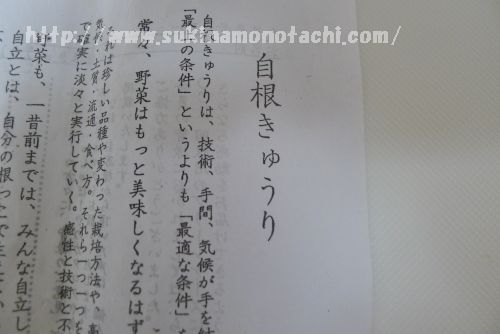 http://www.sukinamonotachi.com/
自根きゅうり
自根きゅうりは、技術、手間、気候が手を結
「最高の条件」というよりも「最適な条件」
常々、野菜はもっと美味しくなるはず
それは珍しい品種や変わった栽培方法や、
気候・土質・流通・食べ方。それら一つ一つを
で確実に淡々と実行していく。感性と技術と不
野菜も、一昔前までは、みんな自立し
自立とは、自分の根っこで生